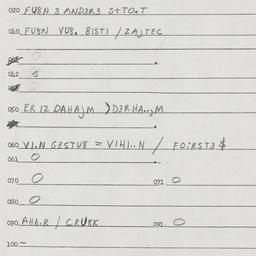 020 FU8N 3 AND3R3 S+TO.T
040 FU8N VU8. BISTI / ZAJTEC
042 8
050 ER IZ DAHAJM ) D3RHA..,M
060 VI.N GESTU8 = VIHI..N / FO:RST3 $
061 O
070 O 071 O
080 O
090 AHA.R / CRU8K 091 O
100 —